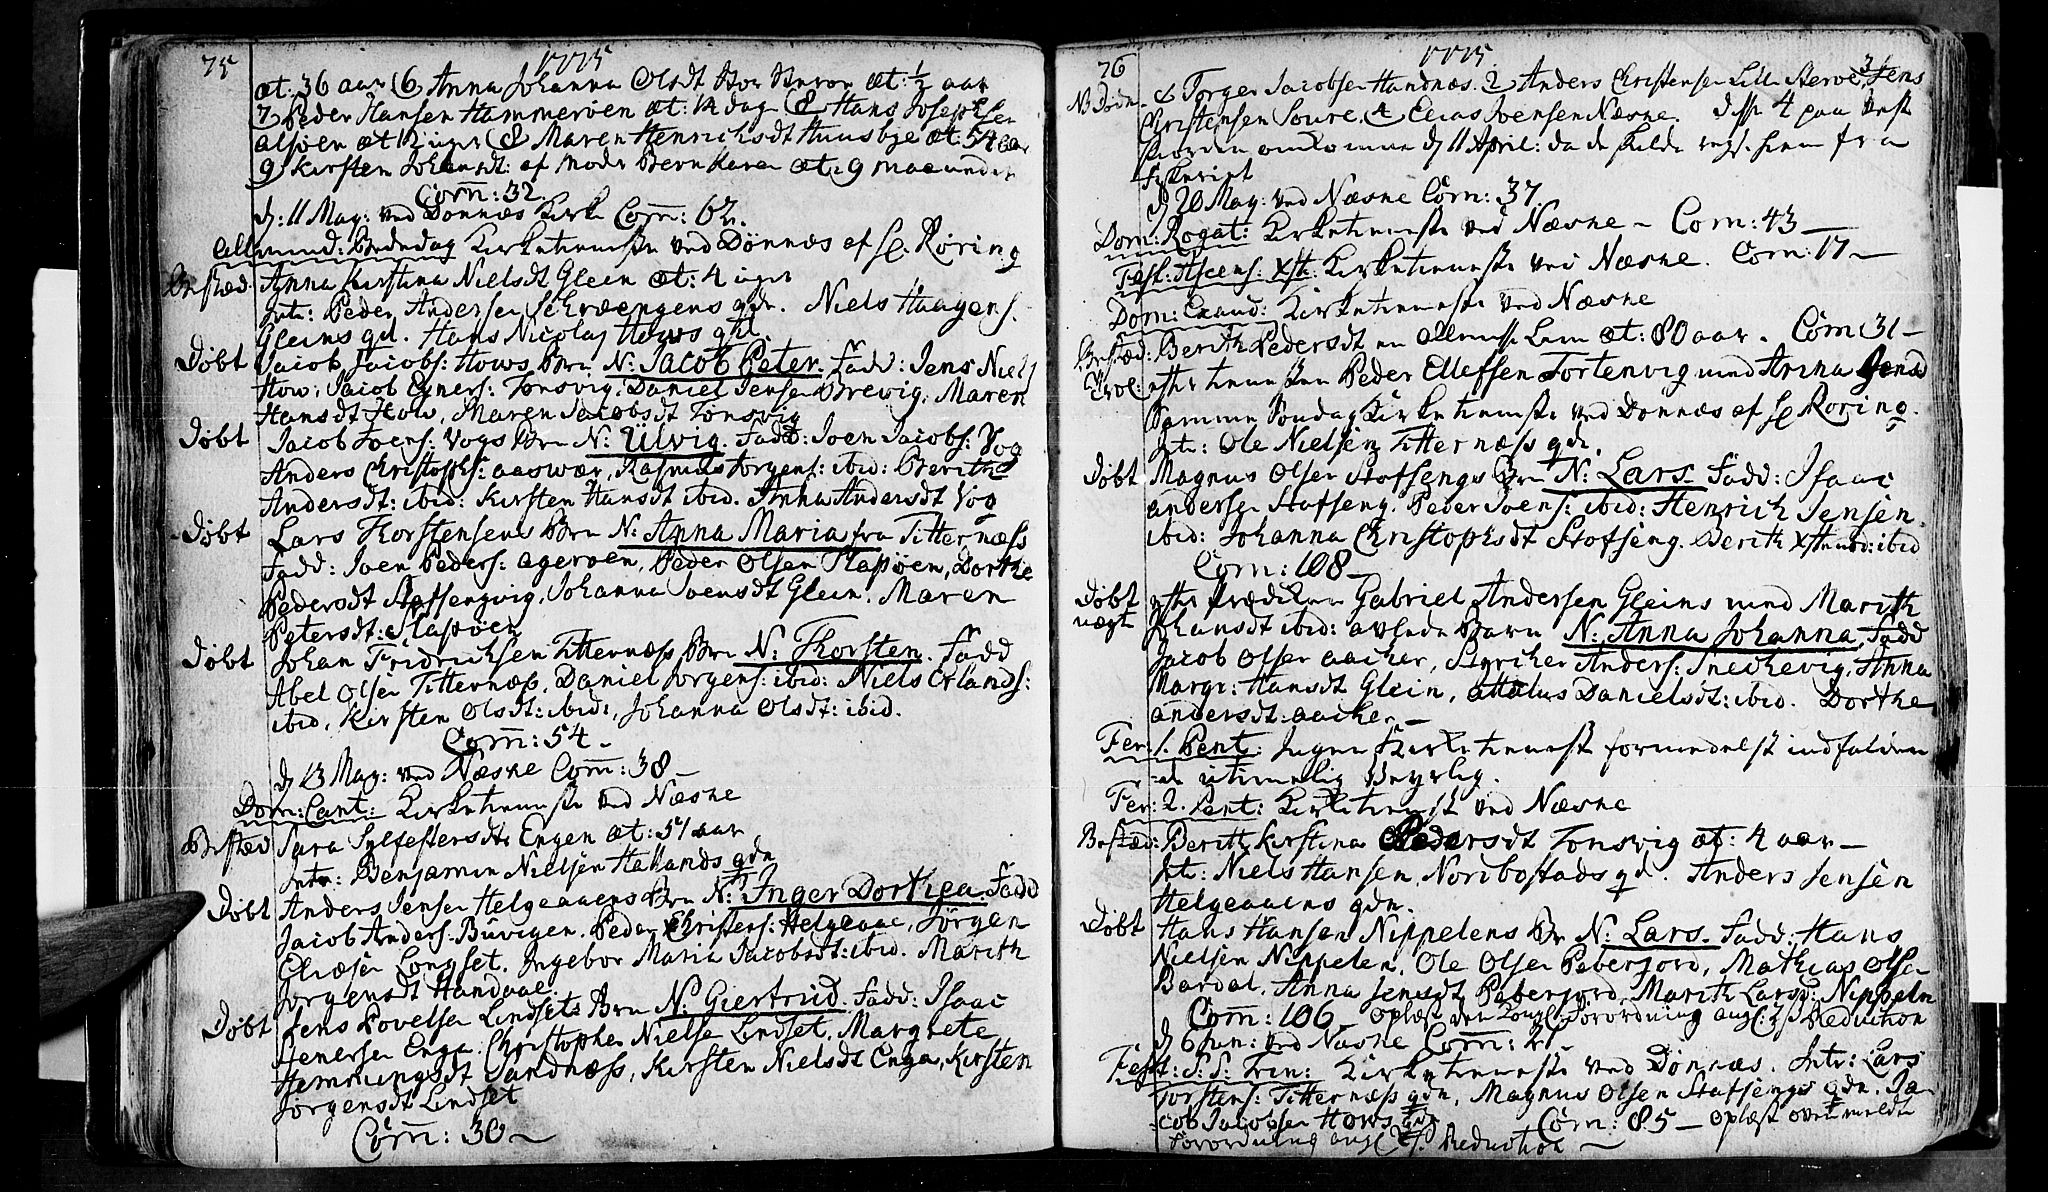 75
1775
æt: 36 aar (6 Anna Johanna Olsdt Hor æt: ½ aar
7 Peder Hansen Hammerøen æt: 14 dage (8 Hans Josephsen
alsøen æt 12 uger (8 Maren Henrichsdt Huusbye æt: 54 aar
9 Kirsten Johansdt: af Moder Bernkaren æt: 9 maaneder
Com: 32.
d: 11 Maj: ved Dønnæs Kirke Com: 62.
Allmind: Bededag Kirketienneste ved Dønnæs af Hr. Røring
Bested: Anna Kirstina Nielsdt Glein æt: 4 uger
Intr: Peder Andersen gde. Niels Haagens:
Gleins gd. Hans Nicolaj Hows qde.
Døbt Jacob Jacobs: Hows Brn N: Jacob Peter. Fadd: Jens Niels
How, Jacob Egners: Tonsvig, Daniel Jensen Brevig, Maren
Hansdt How, Maren Jacobsdt Tonsvig
Døbt Jacob Joens: Vogs Brn N: Ulvig. Fadd: Joen Jacobs: Vog
Anders Christophs: aaswær, Rasmus Jørgens: ibid: Berithe
Andersdt: ibid: Kirsten Hansdt ibid. Anna Andersdt Vog
Døbt Lars Thorstensens Brn N: Anna Maria fra Titternæss
Fadd: Joen Peders: agerøen, Peder Olsen Slapøen, Dorthe
Pedersdt Stafsengvig, Johanna Joensdt Glein. Maren
Petersdt: Slapøen
Døbt Johan Fridrichsen Titternæss Brn N: Thorsten. Fadd
Abel Olsen Titternæs. Daniel Jørgens: ibid: Niels Erlands:
ibid, Kirsten Olsdt: ibid:, Johanna Olsdt: ibid.
Com: 54 –
d 13 Maj: ved Næsne Com: 38 –
Dom: Cant: Kirketienneste ved Næsne
Bested Sara Sylfestersdt Engen æt: 51 aar
Intr: Benjamin Nielsen Hallands qde
Døbt Anders Jensen Helgeaaens Brn N: Inger Dorthea. Fadd
Jacob Anders: Buvigen. Peder Christens: Helgeaae, Jørgen
Eliæsen Longset. Ingebor Maria Jacobsdt: ibid. Marith
Jørgensdt Handaae.
Døbt Jens Povelsen Lindsets Brn N: Giertrud. Fadd: Isaac
Enga. Christopher Nielsen Lindset, Margrete
Hemmingsdt Sandnæss, Kirsten Nielsdt Enga, Kirsten
Jørgensdt Lindset
Com: 30 –
76
1775.
NB Døde 1 Torger Jacobsen Handnæs. 2 Anders Christensen Lille 3, Jens
Christensen Soure, 4 Elias Joensen Næsne. disse 4 paa Vest
Fiorden omkomne d 11 April: da de skulde rejse hiem fra
Fiskeriet
d 20 Maj: ved Næsne Com: 37.
Dom: Rogat: Kirketienneste ved Næsne – Com: 43 –
Fest: Ascens: Xsti: Kirketienneste ved Næsne. Com: 17 –
Dom: Exaud: Kirketienneste ved Næsne
Bested: Berith Pedersdt en Almisse Lem æt: 80 aar. Com 31 –
Trol: efter tiennesten Peder Ellefsen Tortenvig med Anna Jensd
Samme Søndag Kirketienneste ved Dønnæs af Hr Røring.
Intr: Ole Nielsen Titternæss qde.
Døbt Magnus Olsen Stafsengs Brn N: Lars. Fadd: Isaac
andersen Stafseng. Peder Joens: ibid: Henrich Jensen
ibid: Johanna Christophsdt Stafseng. Berith Xstensd: ibid
Com: 108 –
Døbt efter Prædiken Gabriel Andersen Gleins med Marith
uægte Johansdt ibid: avlede Barn N: Anna Johanna, Fadd
Jacob Olsen aacker, Anders: Sneckevig, Anna
Margr: Hansdt Glein, Danielsdt: ibid. Dorthe
andersdt: aacker –
Fer: 1. Pent: Ingen Kirketienneste formedelst indfalden
utimelig Veyrlig.
Fer: 2. Pent: Kirketienneste ved Næsne
Bested: Berith Kirstina Pedersdt Tonsvig æt: 4 aar –
Int: Niels Hansen Nordbostads qd. Anders Jensen
Helgeaaens qde.
Døbt Hans Hansen Nippelens Br N: Lars. Fadd: Hans
Nielsen Nippelen, Ole Olsen Peberjord, Mathias Olsen
Bardal, Anna Jensdt Peberjord, Marith Larsd: Nippeln
Com: 106 – Oplæst den Kongl: Forordning ang: Reduction
d 6 Jun: ved Næsne Com: 21 –
Fest: S: S: Trin: Kirketienneste ved Dønnæs. Intr: Lars
Torstens: Titternæss qde, Magnus Olsen Stafsengs qde. Ja-
cob Jacobsen Hows qde Com: 85 – Oplæst ovenmeldt
Forordning ang Reduction –